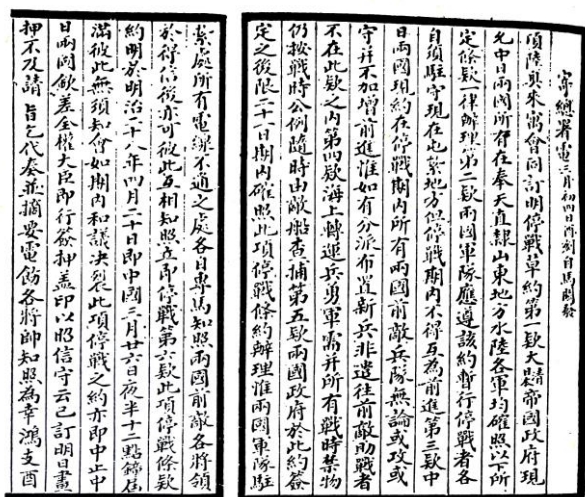 寄總署電三月初四日酉刻自馬關發
頃陸奧來寓會同訂明停戰草約第一款大日本帝國政府現
允中日兩國所有在奉天直隸山東地方水陸各軍均確照以下所
定條款一律辦理第二款兩國軍隊應遵該約暫行停戰者各
自須駐守現在屯紮地方但停戰期內不得互為前進第三款中
日兩國現約在停戰期內所有兩國前敵兵隊無論或攻或
守并不加增前進惟如有分派布置新兵非遣往前敵助戰者
不在此款之內第四款海上轉運兵勇軍需并所有戰時禁物
仍按戰時公例隨時由敵船查捕第五款兩國政府於此約簽
定之後限二十一日期內確照此項停戰條約辦理惟兩國軍隊駐
紮處所有電線不通之處各自專馬知照兩國前敵各將領
於得信後亦可彼此互相知照立即停戰第六款此項停戰條款
約明於明治二十八年四月二十日即中國三月廿六日夜半十二點鐘屆
滿彼此無須知會如期內和議決裂此項停戰之約亦即中止中
日兩國欽差全權大臣即行簽押蓋印以昭信守云已訂明日畫
押不及請旨乞代奏並摘要電飭各將帥知照為幸鴻支酉